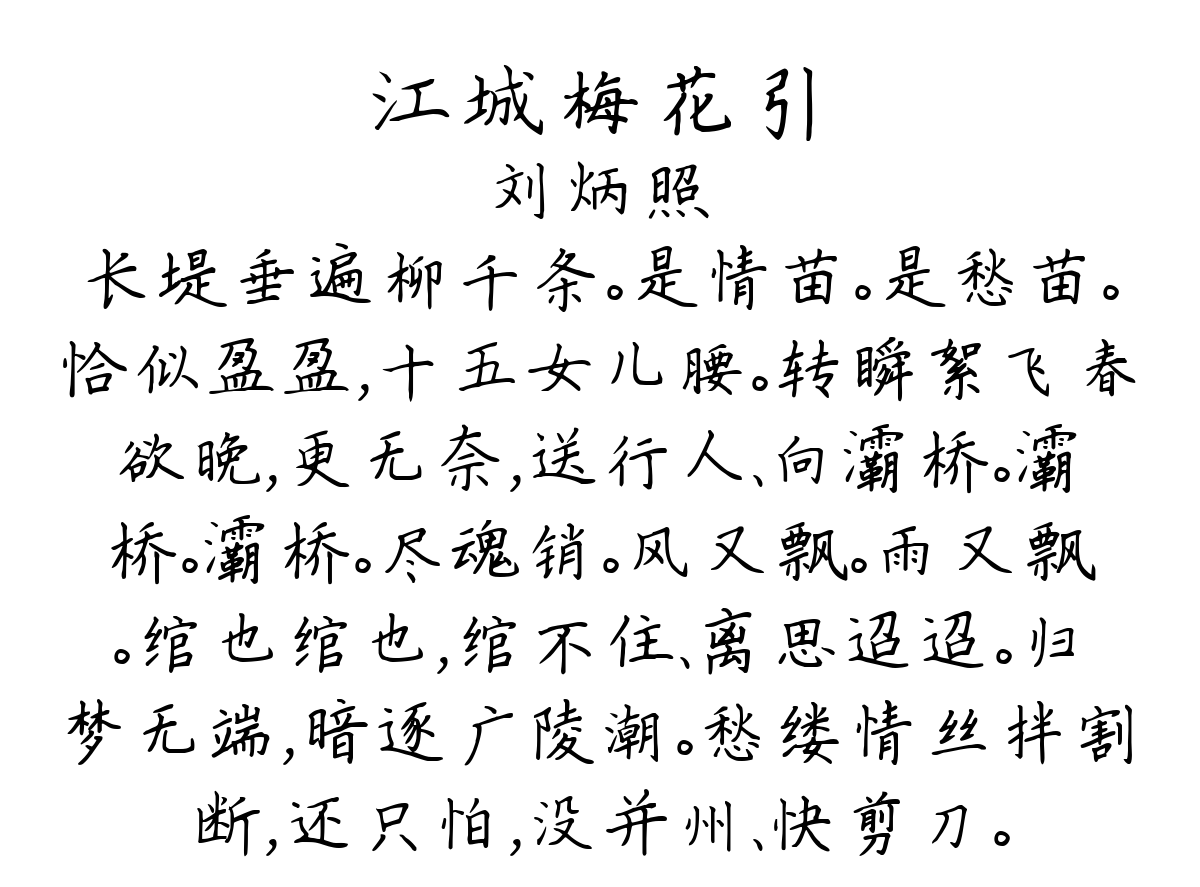 江城梅花引
刘炳照
长堤垂遍柳千条。是情苗。是愁苗。
恰似盈盈,十五女儿腰。转瞬絮飞春
欲晚,更无奈,送行人、向灞桥。灞
桥。灞桥。尽魂销。风又飘。雨又飘
。绾也绾也,绾不住、离思迢迢。归
梦无端,暗逐广陵潮。愁缕情丝拌割
断,还只怕,没并州、快剪刀。